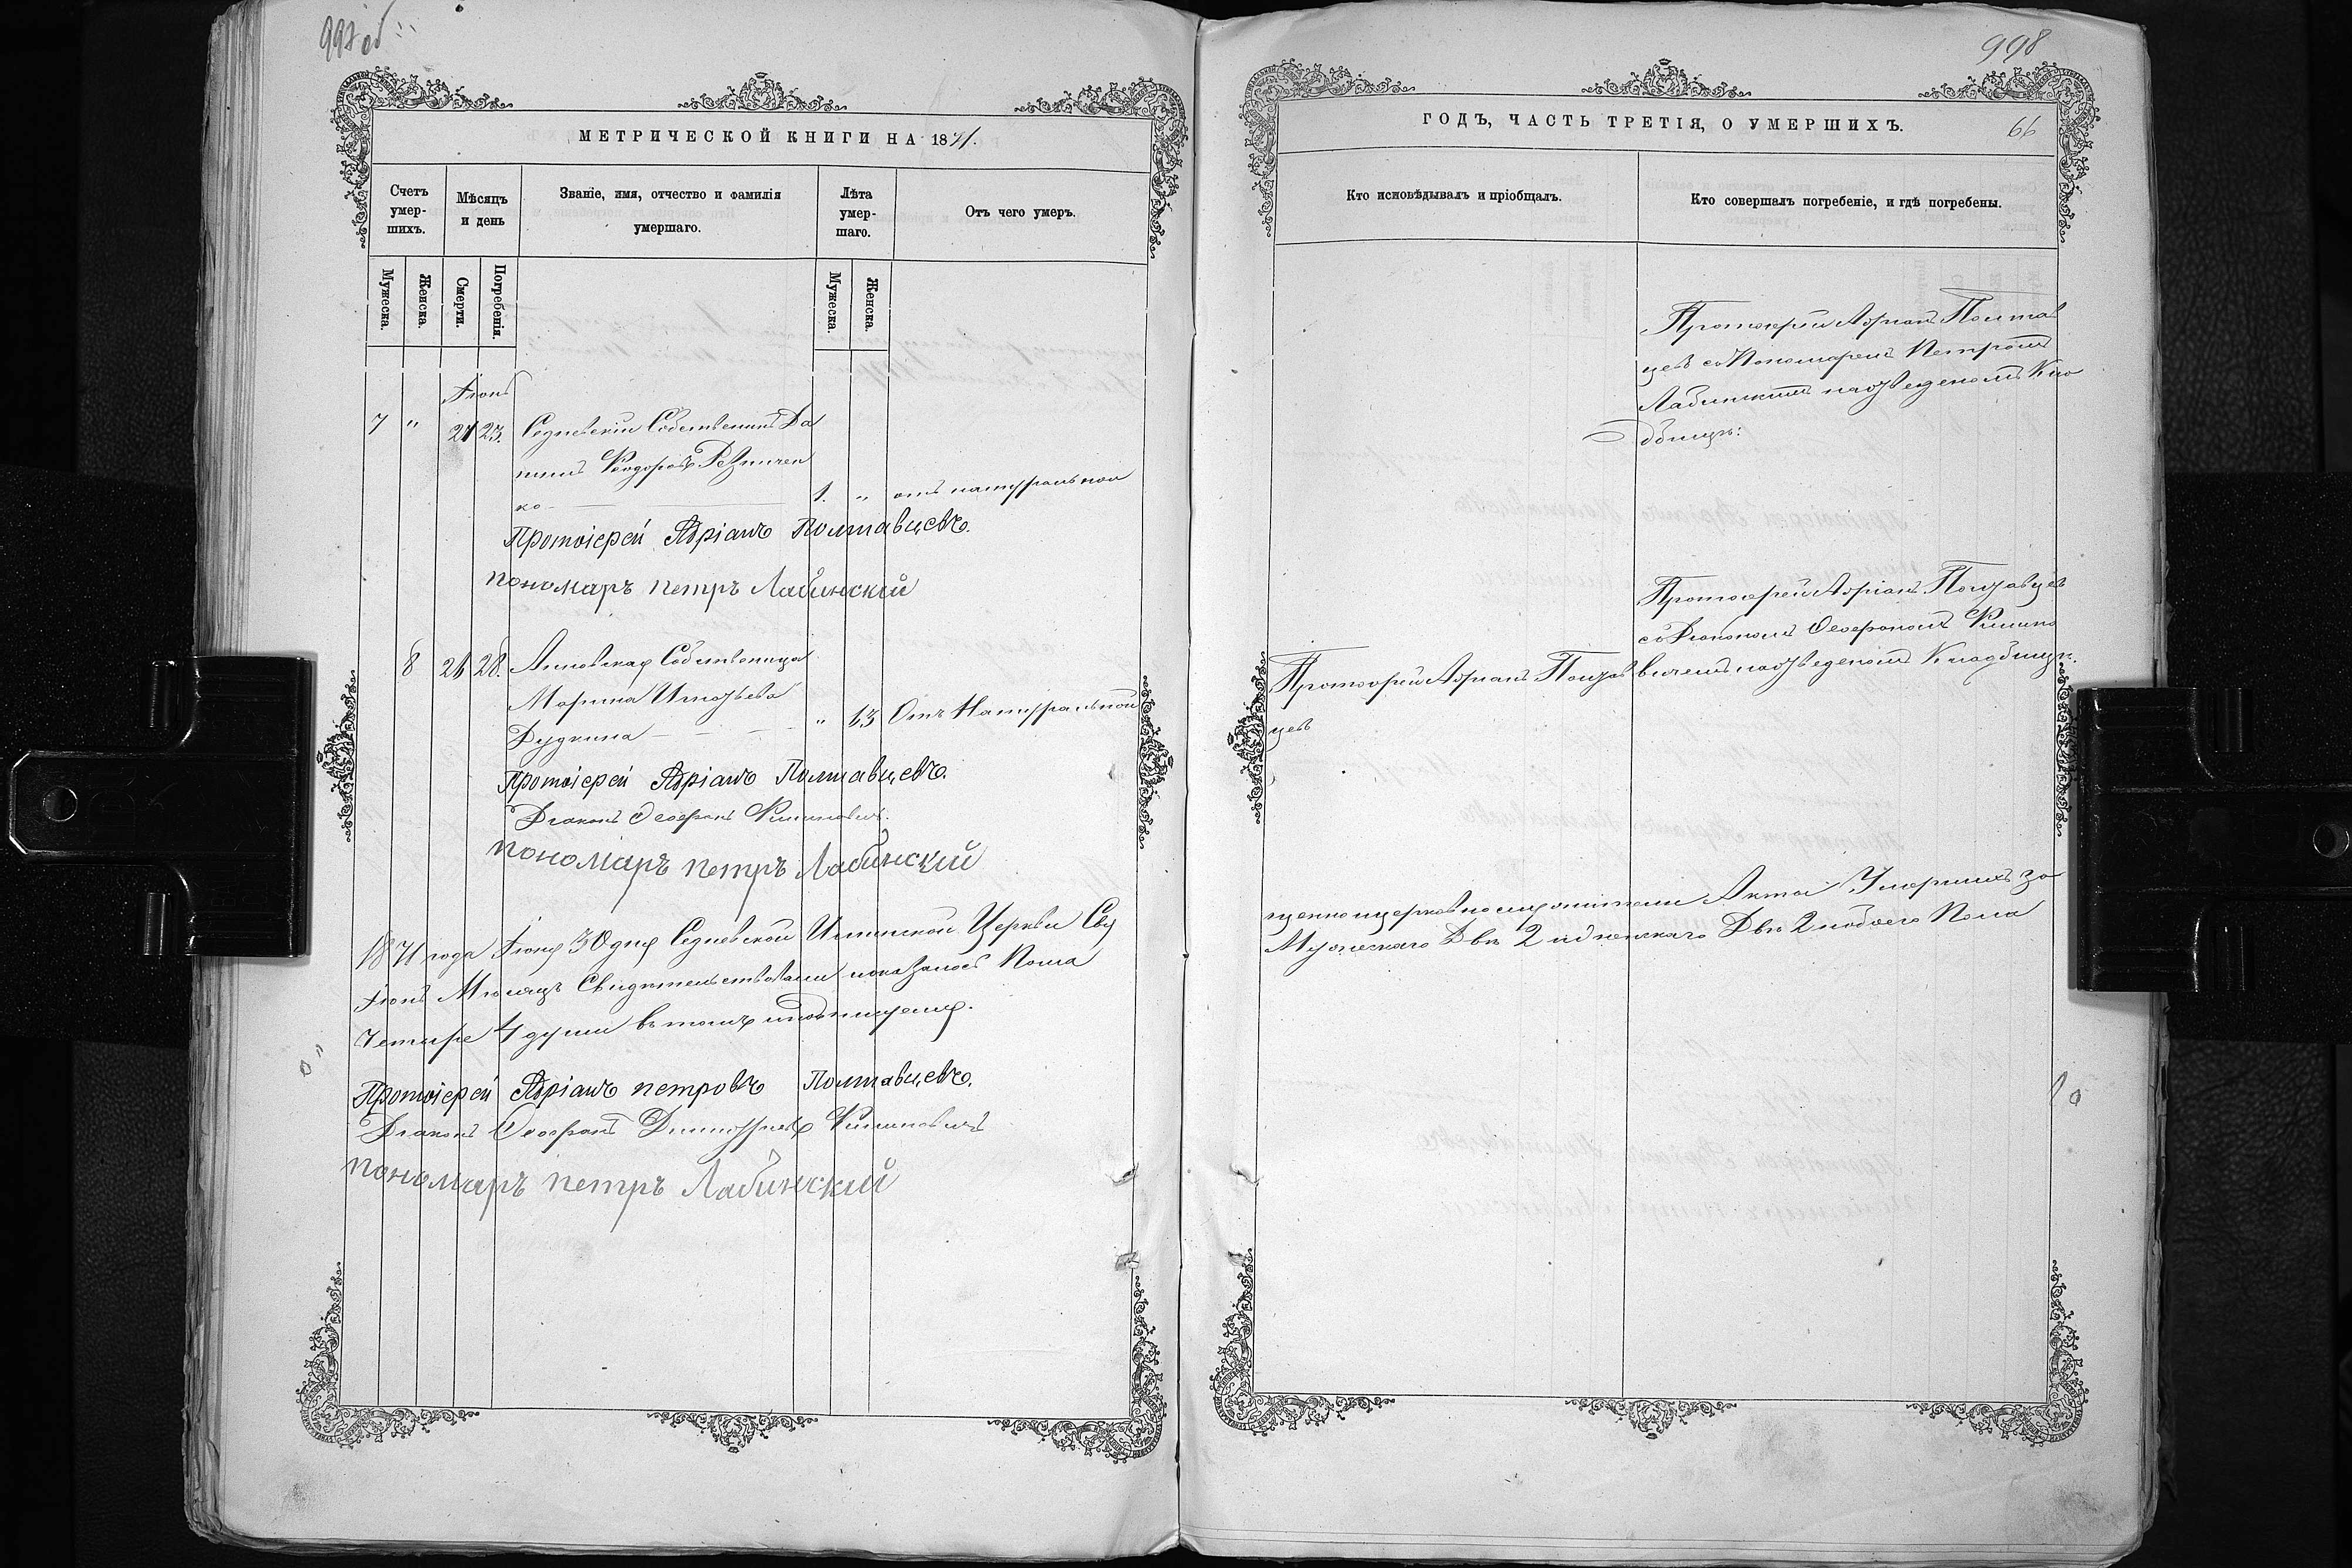 997 об
МЕТРИЧЕСКОЙ КНИГИ НА 1871.
Счетъ умер-шихъ.
Мѣсяцъ и день
Званіе, имя, отчество и фамилія умершаго.
Лѣта умер-шаго.
Отъ чего умеръ.
Мужеска.
Женска.
Смерти.
Погребенія.
Мужеска.
Женска.
Іюнь
7 " 21 23. Седневскій Собственникъ Да
ниилъ Феодоровъ Резничен
ко 1. " отъ натуральной
Протоіерей Адріанъ Полтавцевъ.
пономаръ петръ Лабинскій
8 26 28. Собственница
Марина Игнатьева
Дудкина " 63 Отъ Натуральной
Протоіерей Адріанъ Полтавцевъ.
Діаконъ
пономаръ петръ Лабинскій
1871 года Іюня 30 дня Седневской Церкви Свя
Іюнь Месяцъ Свидетельствовали показалось Пола
Четыре 4 души въ томъ и подпищемся.
Протоіерей Адріанъ петровъ Полтавцевъ.
Діаконъ Димитріевъ
пономаръ петръ Лабинскій
998
ГОДЪ, ЧАСТЬ ТРЕТІЯ, О УМЕРШИХЪ.
66
Кто исповѣдывалъ и пріобщалъ.
Кто совершалъ погребеніе, и гдѣ погребены.
Протоіерей Адріанъ Полтав
цевъ съ Пономаремъ Петромъ
Лабинскимъ на отведеномъ Кла
дбищѣ:
Протоіерей Адріанъ Полтавцевъ
съ Діакономъ
вичемъ на отведеномъ Кладбищѣ.
Протоіерей Адріанъ Полтав
цевъ
щенноцерковнослужители Акты Умершихъ за
Мужескаго Двѣ 2 и женскаго Двѣ 2 и обоего Пола